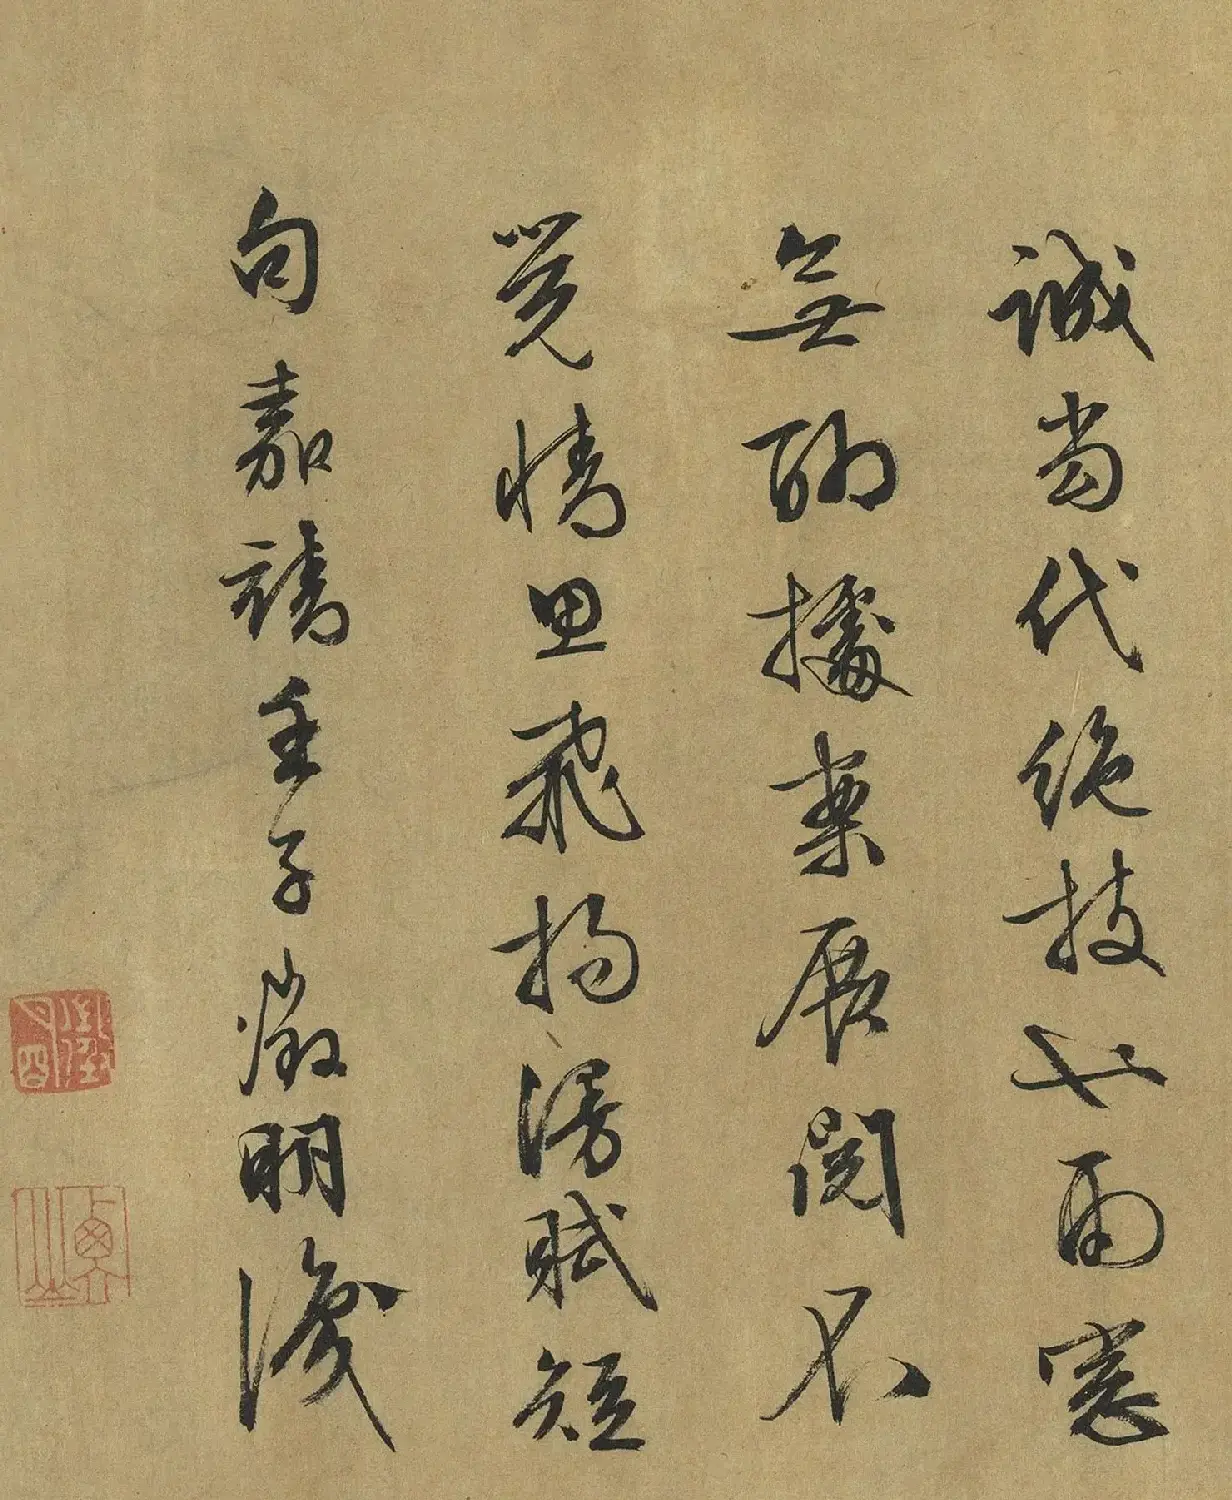 誠當代絕技也雨窓
無聊據案展閱不
覺情思飛揚漫賦短
句嘉靖壬子徵明識